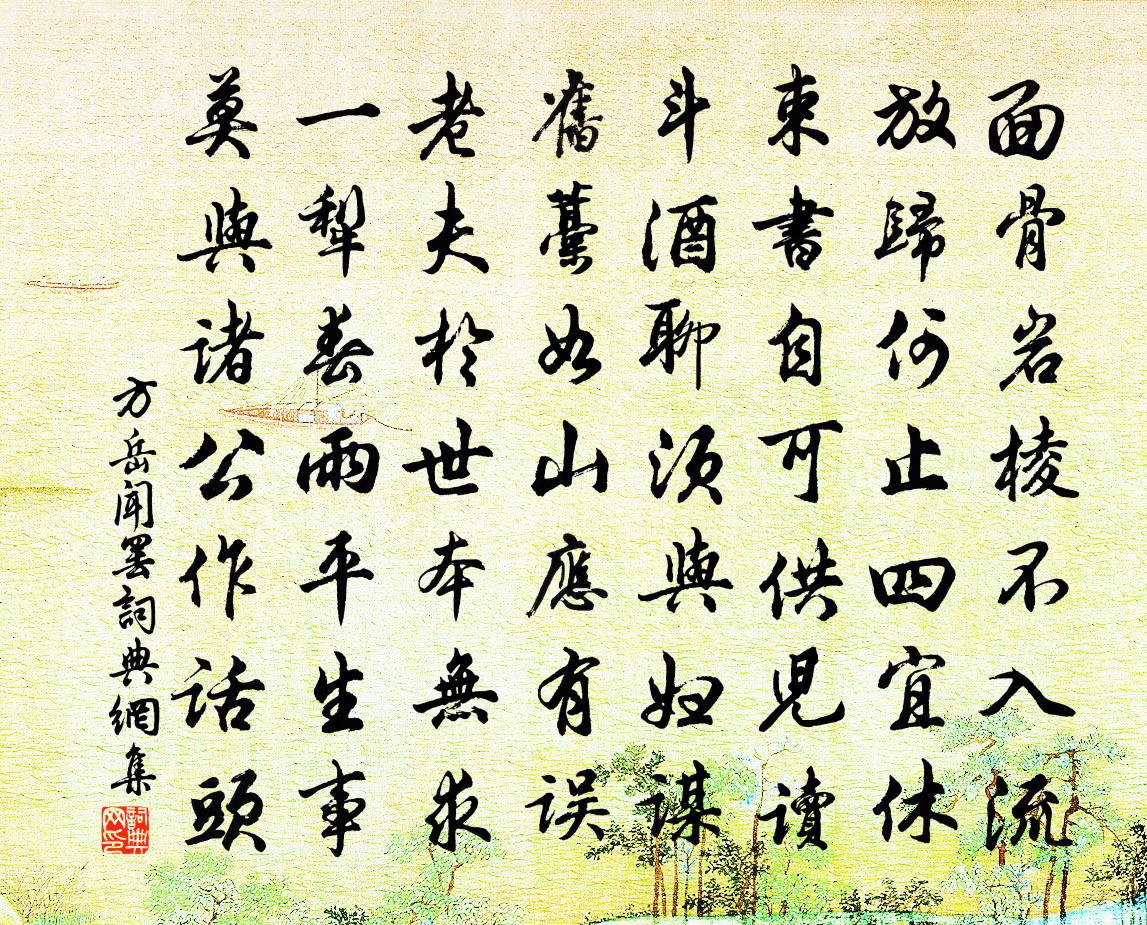 面骨岩棱不入流
放歸何止四宜休
束書自可供兒讀
斗酒聊須與婦謀
舊藁如山應有誤
老夫於世本無求
一犁春雨平生事
莫與諸公作話頭
方岳聞罷詞典網集
詞典網印